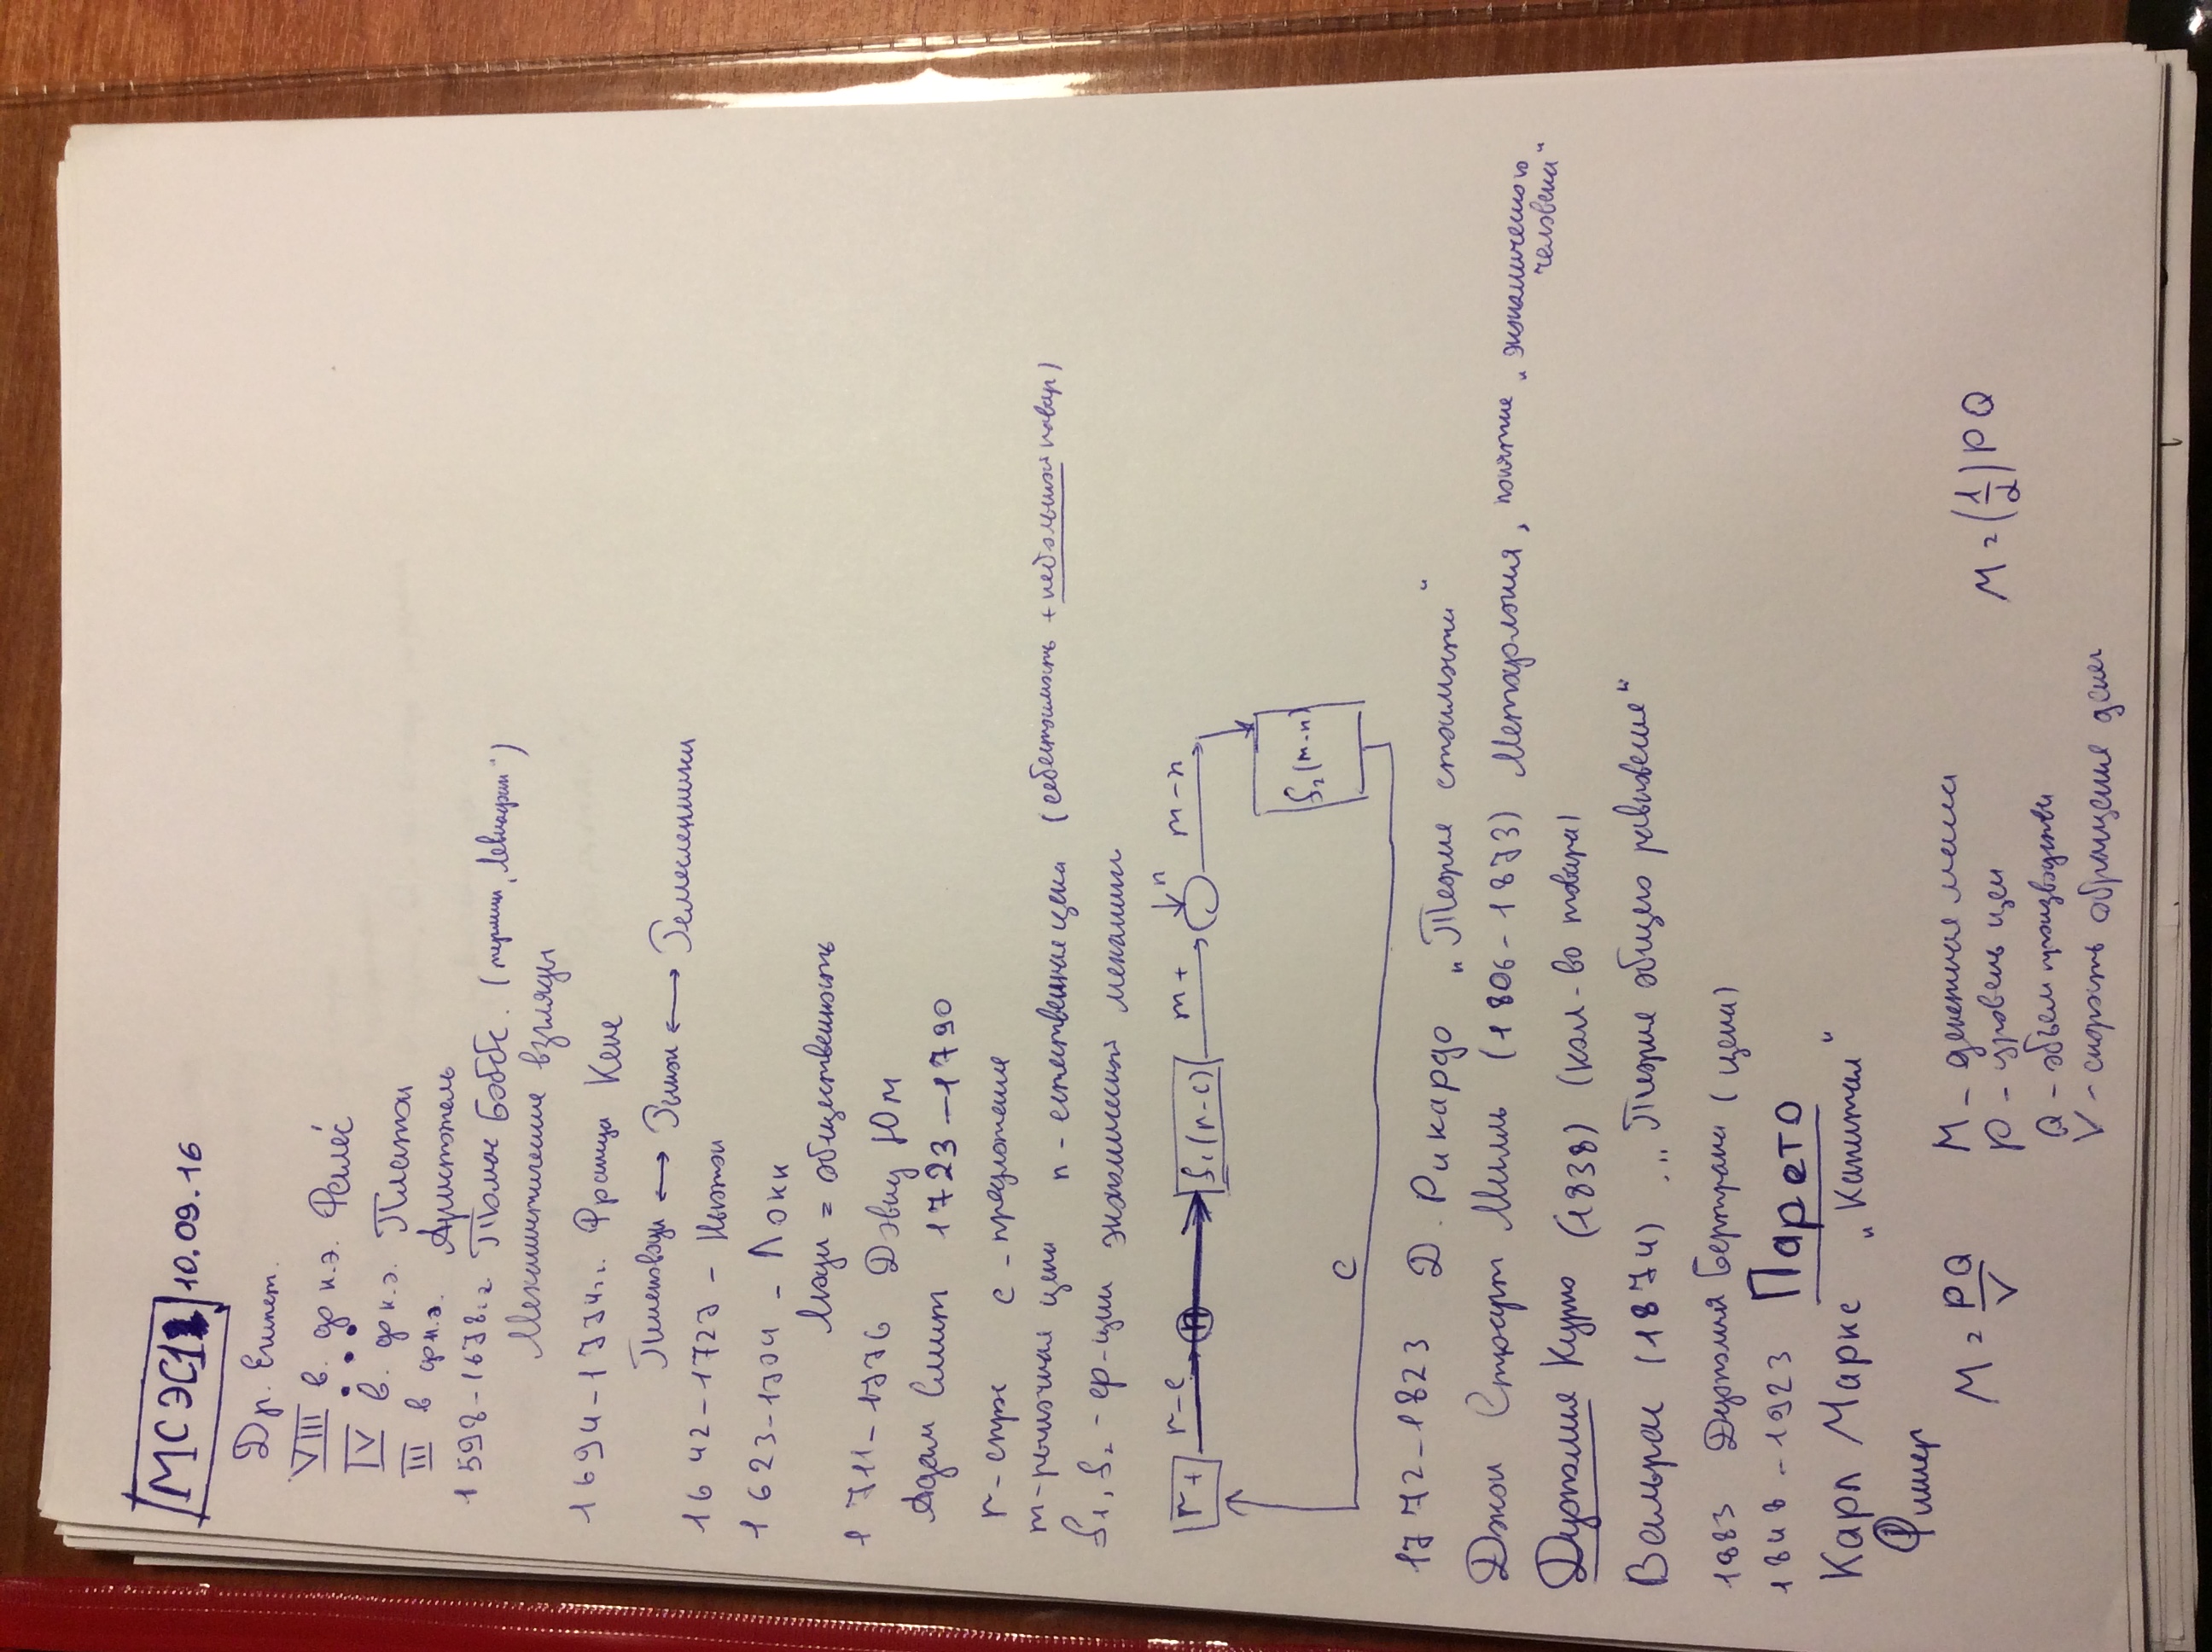 МСЭС1 10.09.16
Др. Египет.
VIII в. до н.э. Фалес
IV в. до н.э. Платон
III в до н.э. Аристотель
1598-1678г.г. Томас Гоббс. (термин „Левиафан")
Механистические взгляды
1694-1774г.г. Франсуа Кене
Земледельцы ⟷ Рынок ⟷ Ремесленники
1642-1727 - Ньютон
1623-1704 - Локк
Люди = общественность
1711-1776 Дэвид Юм
Адам Смит 1723-1790
r - спрос c - предложение
m - рыночная цена n - естественная цена (себестоимость + небольшой навар)
f₁, f₂ - ф-ции экономической механики
r + r-c n f₁(r-c) m + n m-n
f₂(m-n)
c
1772-1823 Д. Рикардо „Теория стоимости"
Джон Стюарт Милль (1806-1873) Методология, понятие „экономического
человека"
Дуополия Курно (1838) (кол-во товара)
Вальрас (1874) „Теория общего равновесия"
1883 Дуополия Бертрана (цена)
1848-1923 Парето
Карл Маркс „Капитал"
Фишер
M = PQ/V M - денежная масса M = (1/2) PQ
P - уровень цен
Q - объем производства
V - скорость обращения денег